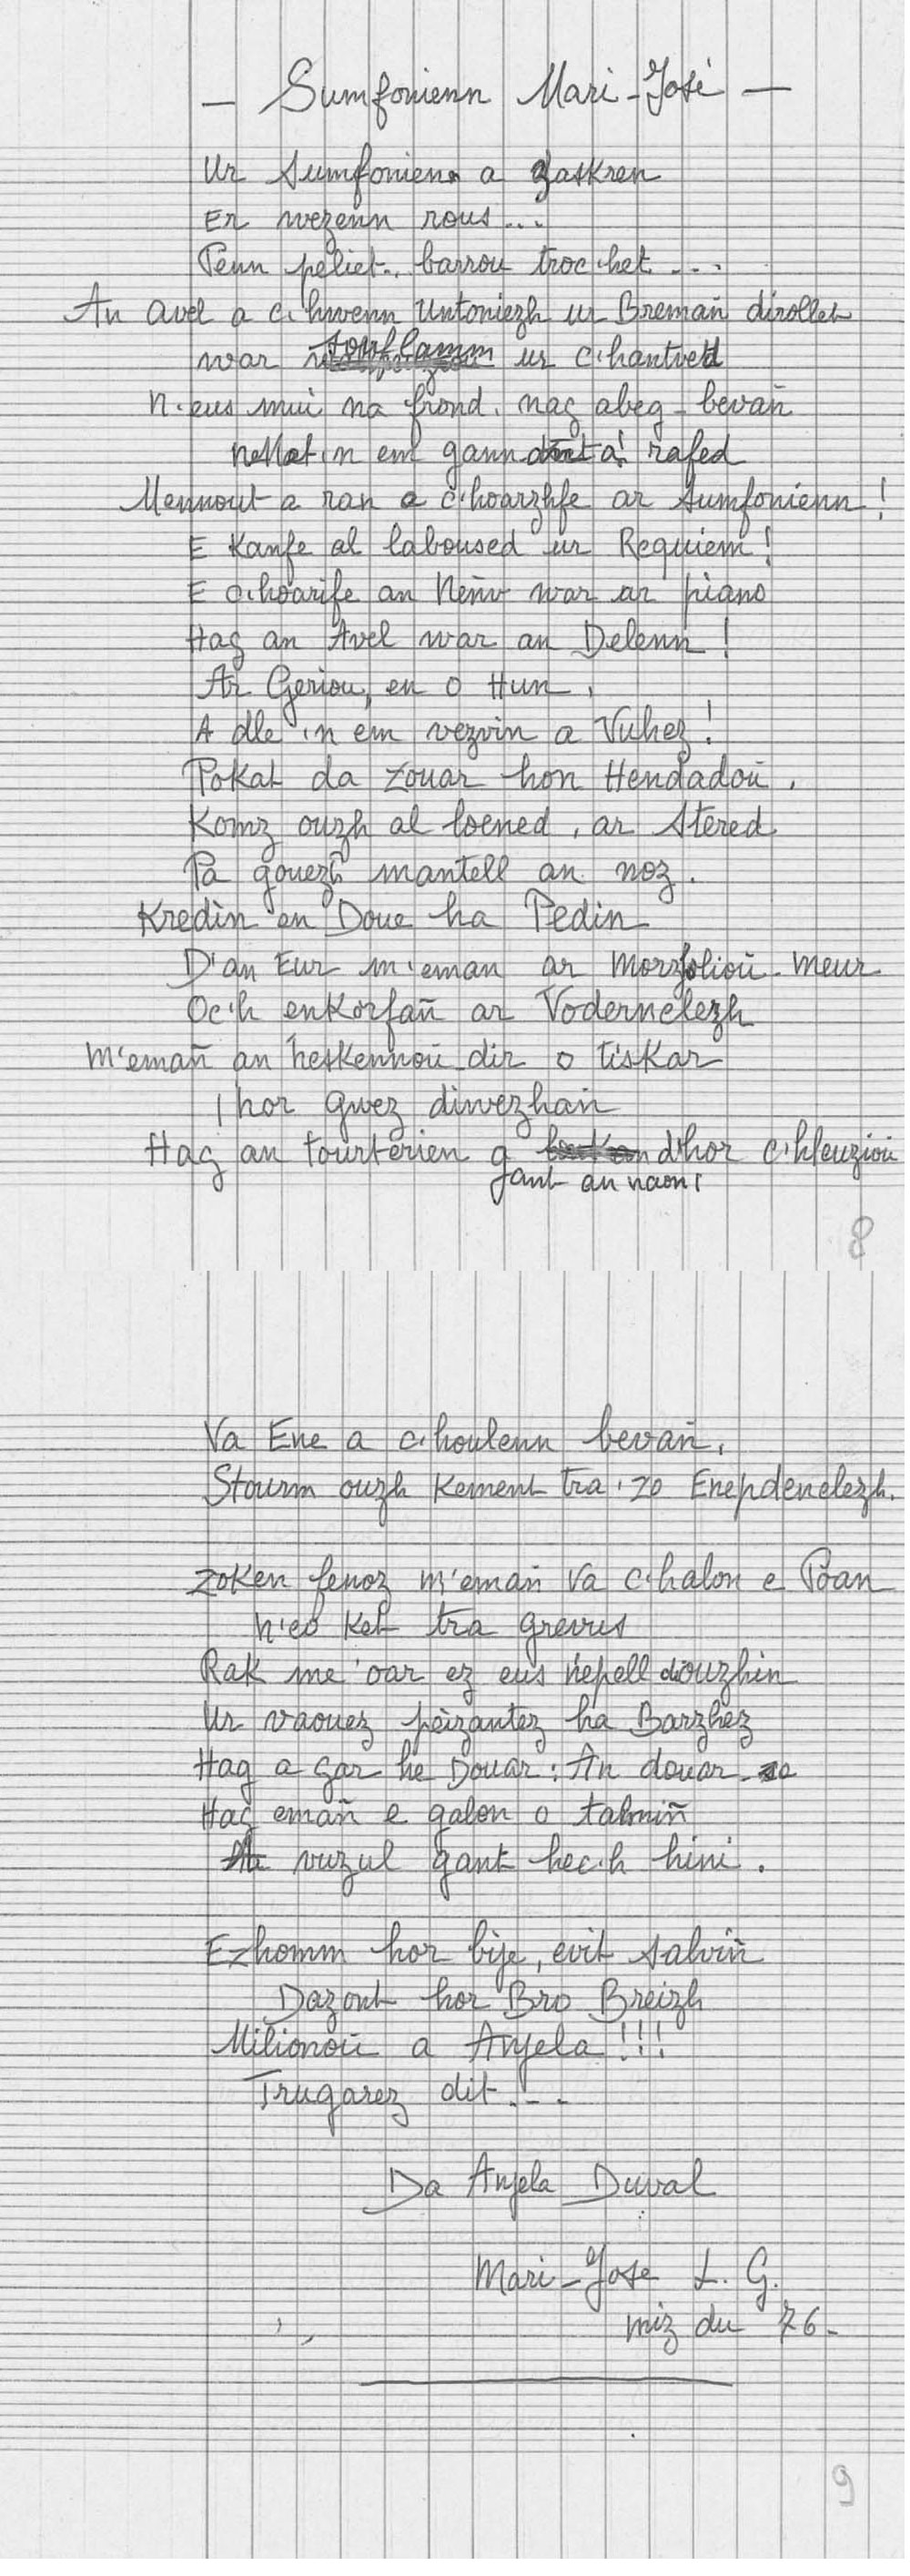 — Sumfonienn Mari-José —
Ur Sumfonienn a gaskren
Er wezenn rous...
Penn peliet.. barrou troc'het....
An avel a c'hwenn Untoniezh ur Bremañ dirollet
war tonflamm ur c'hantved
N'eus mui na frond, nag abeg-bevañ
Nemet 'n em gann a! rafed
Mennout a ran e c'hoarzhfe ar Sumfonienn!
E Kanfe al laboused ur Requiem!
E c'hoarife an Neñv war ar piano
Hag an Avel war an Delenn!
Ar Geriou, en o Hun,
A dle 'n em vezvin a Vuhez!
Pokat da Zouar hon Hendadoù,
Komz ouzh al loened, ar Stered
Pa gouezh mantell an noz.
Kredin en Doue ha Pedin
D'an Eur m'eman ar Morzholioù-meur
Oc'h enkorfañ ar Vodernelezh
M'emañ an heskennoù-dir o tiskar
hor gwez diwezhañ
Hag an tourterien g d'hor c'hleuzioù
gant an naon!
8
Va Ene a c'houlenn bevañ,
Stourm ouzh Kement tra 'zo Enepdenelezh.
Zoken fenoz m'emañ va c'halon e Poan
N'eo ket tra grevus
Rak me 'oar ez eus nepell diouzhin
Ur vaouez peizantez ha Barzhez
Hag a gar he Douar: An douar
Hag emañ e galon o talmiñ
vuzul gant hec'h hini.
Ezhomm hor bije, evit salviñ
Dazont hor Bro Breizh
Milionoù a Anjela!!!
Trugarez dit...
Da Anjela Duval
Mari-Jose L. G.
miz du 76-
9